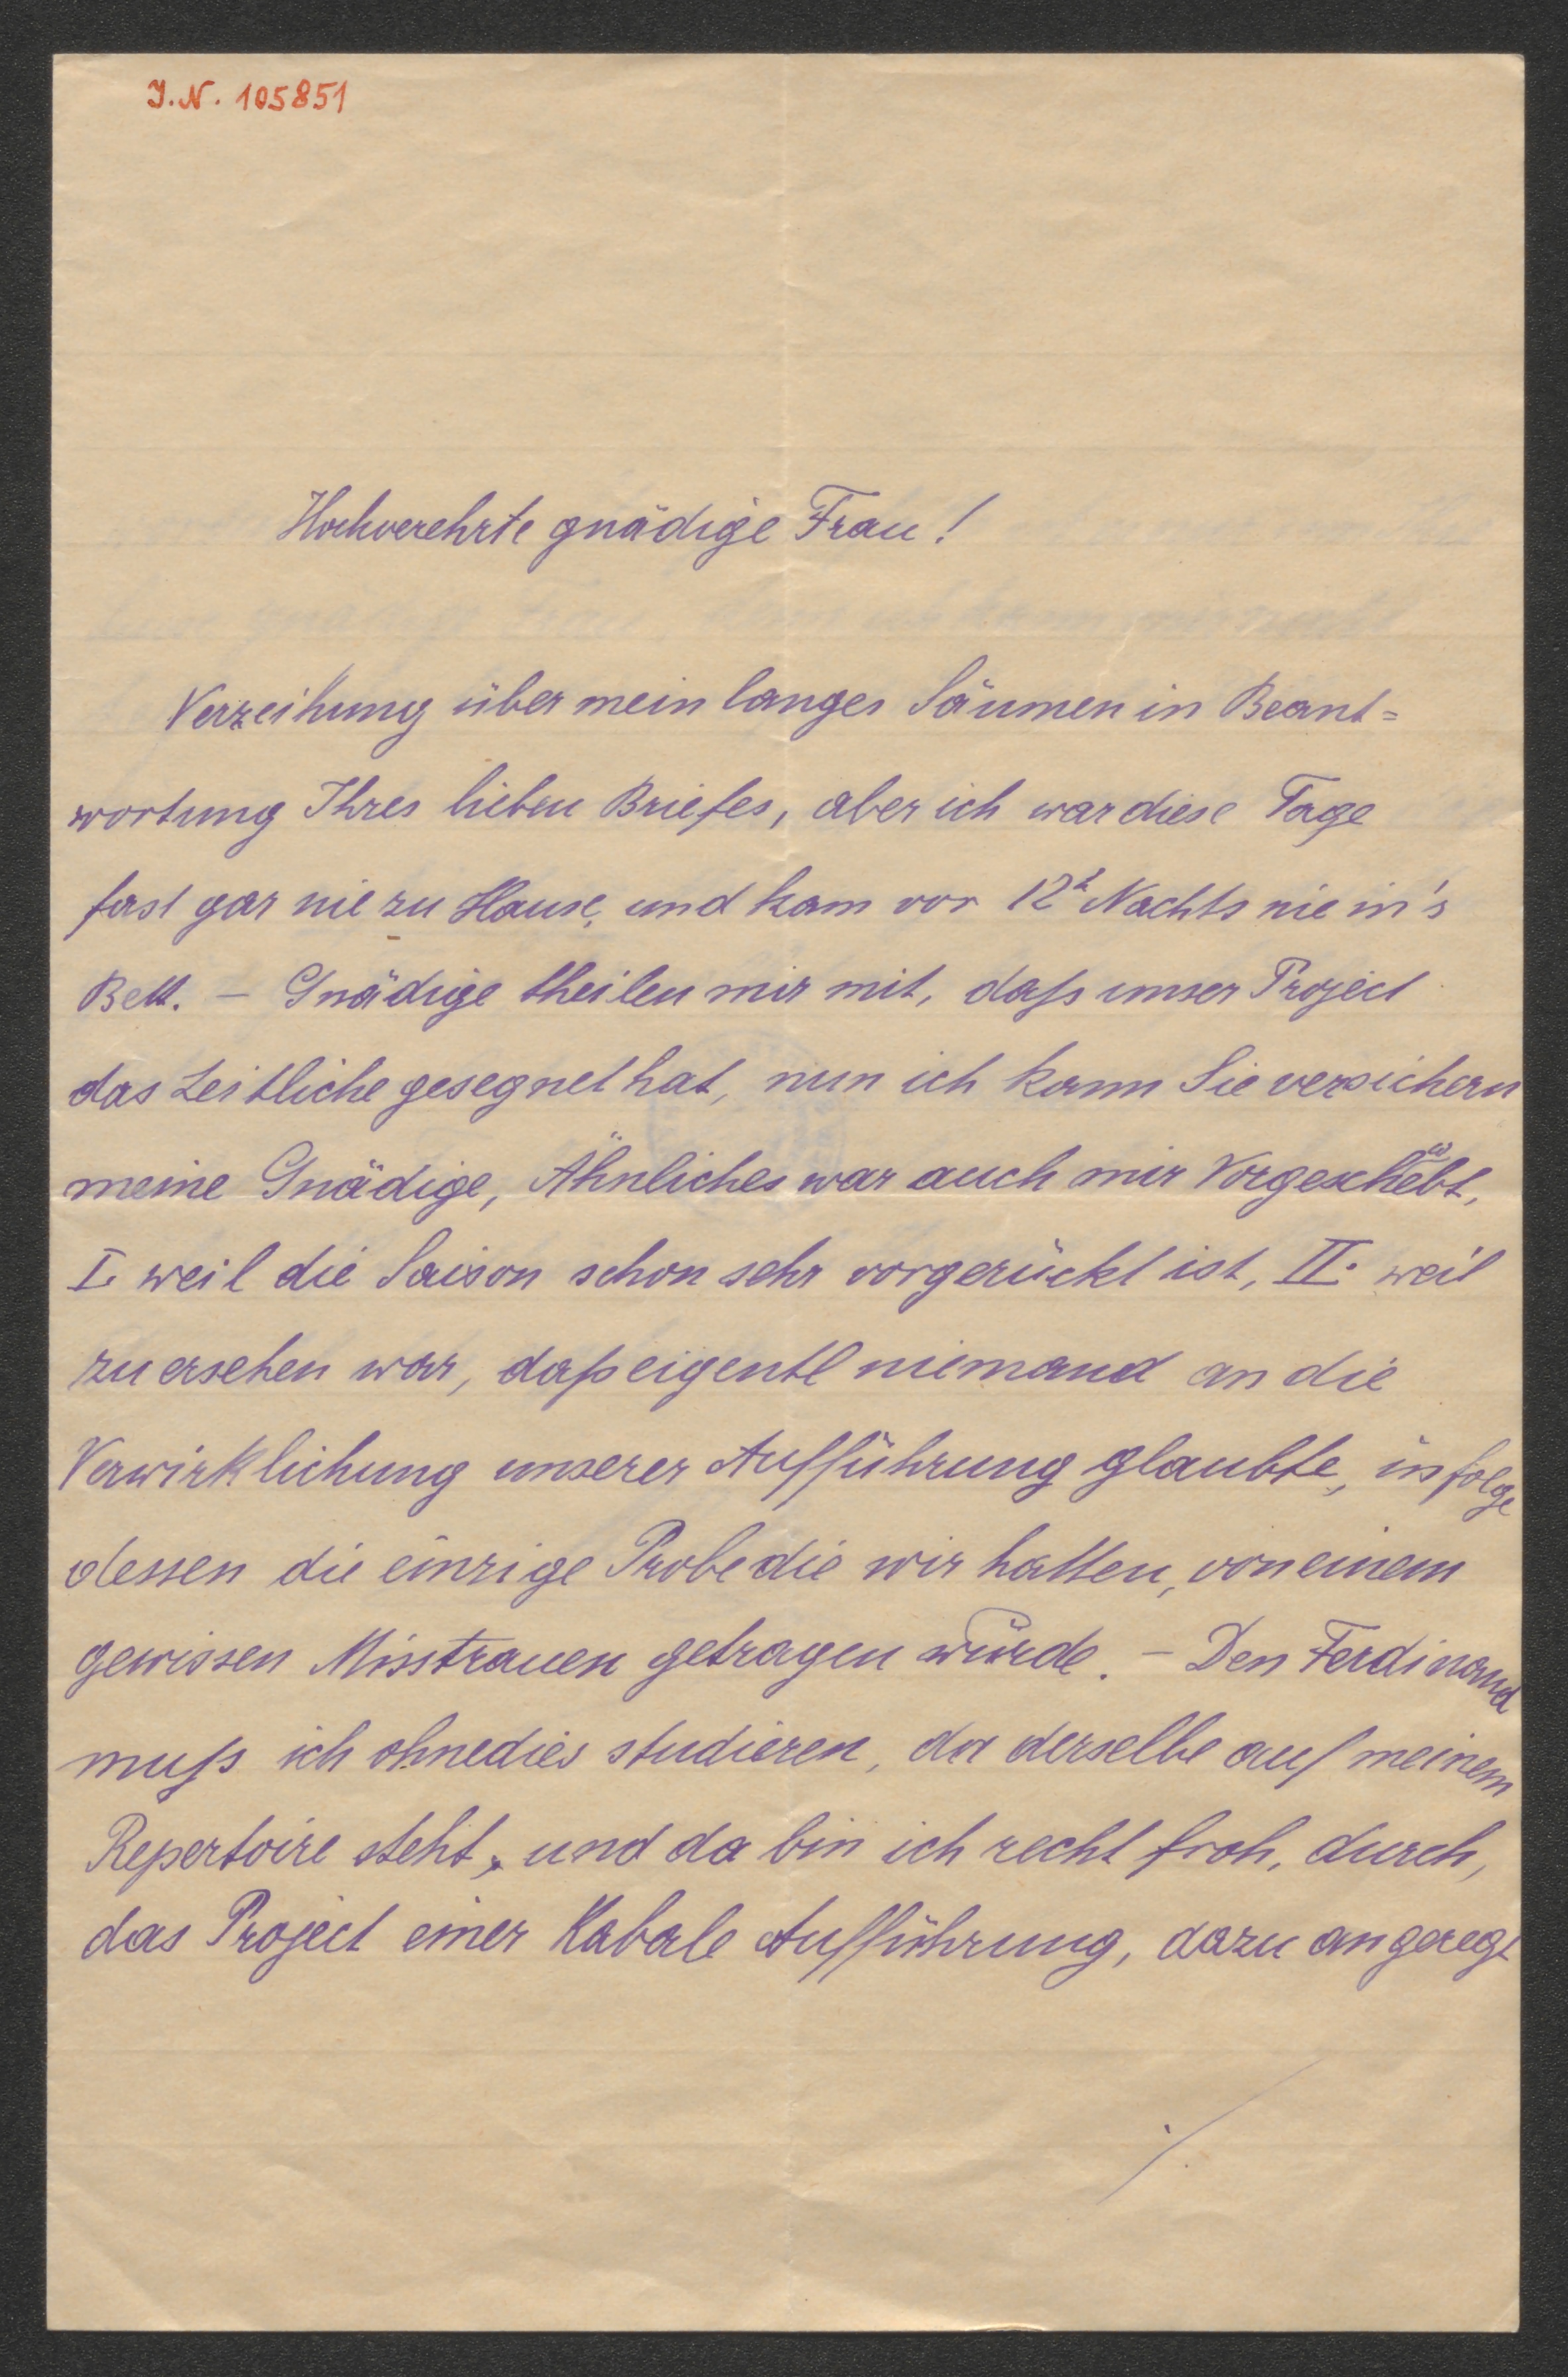 J.N. 105851
Hochverehrte gnädige Frau!
Verzeihung über mein langes Säumen in Beant=
wortung Ihres lieben Briefes, aber ich war diese Tage
fast gar nie zu Hause, und kam vor 12h Nachts nie in's
Bett. – Gnädige theilen mir mit, daſs unser Project
das Zeitliche gesegnet hat, nun ich kann Sie versichern
meine Gnädige, Ähnliches war auch mir Vorgeschwebt,
I. weil die Saison schon sehr vorgerückt ist, II. weil
zu ersehen war, daſs eigentl niemand an die
Verwirklichung unserer Aufführung glaubte, infolge
dessen die einzige Probe die wir hatten, von einem
gewissen Misstrauen getragen wurde. – Den Ferdinand
muſs ich ohnedies studieren, da derselbe auf meinem
Repertoire steht, und da bin ich recht froh, durch,
das Project einer Kabale Aufführung, dazu angeregt
./.